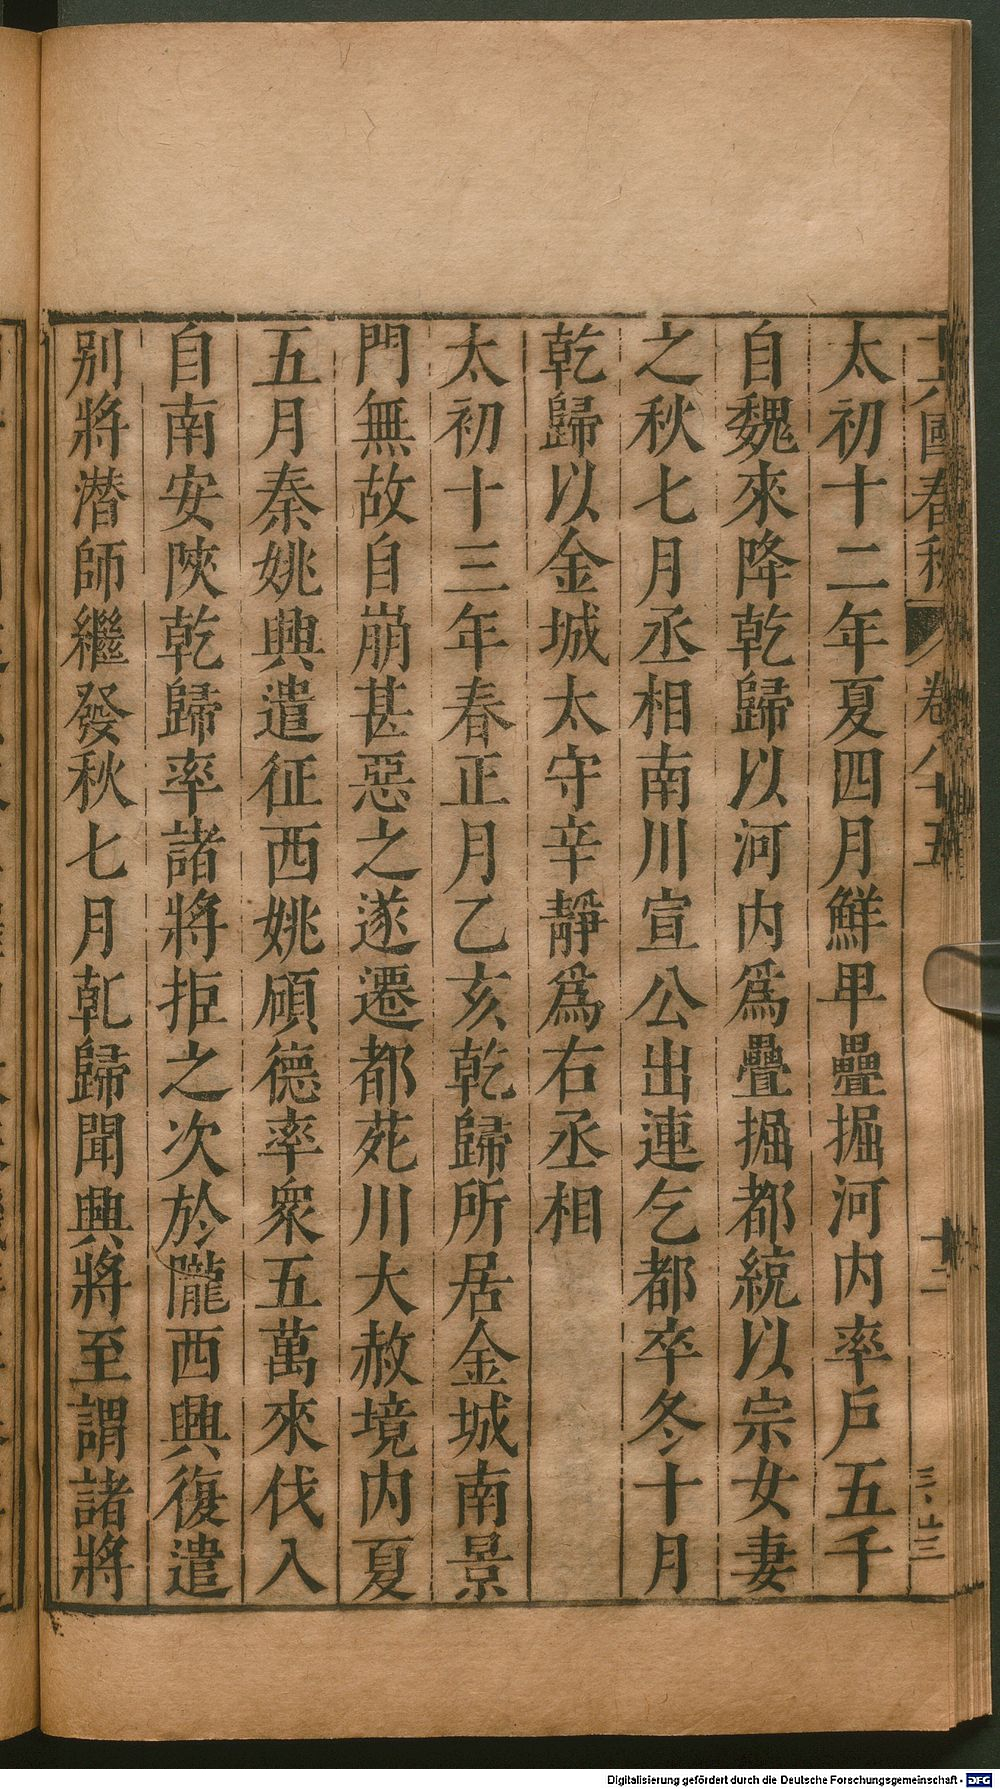 十六國春秋 卷八十五 十二
太初十二年夏四月鮮卑疊掘河内率戶五千
自魏來降乾歸以河内爲疊掘都統以宗女妻
之秋七月丞相南川宣公出連乞都卒冬十月
乾歸以金城太守辛靜爲右丞相
太初十三年春正月乙亥乾歸所居金城南景
門無故自崩甚惡之遂遷都苑川大赦境内夏
五月秦姚興遣征西姚碩德率衆五萬來伐入
自南安陝乾歸率諸將拒之次於隴西興復遣
别將潛師繼發秋七月乹歸聞興將至謂諸將
Digitalisierung gefördert durch die Deutsche Forschungsgemeinschaft - DFG